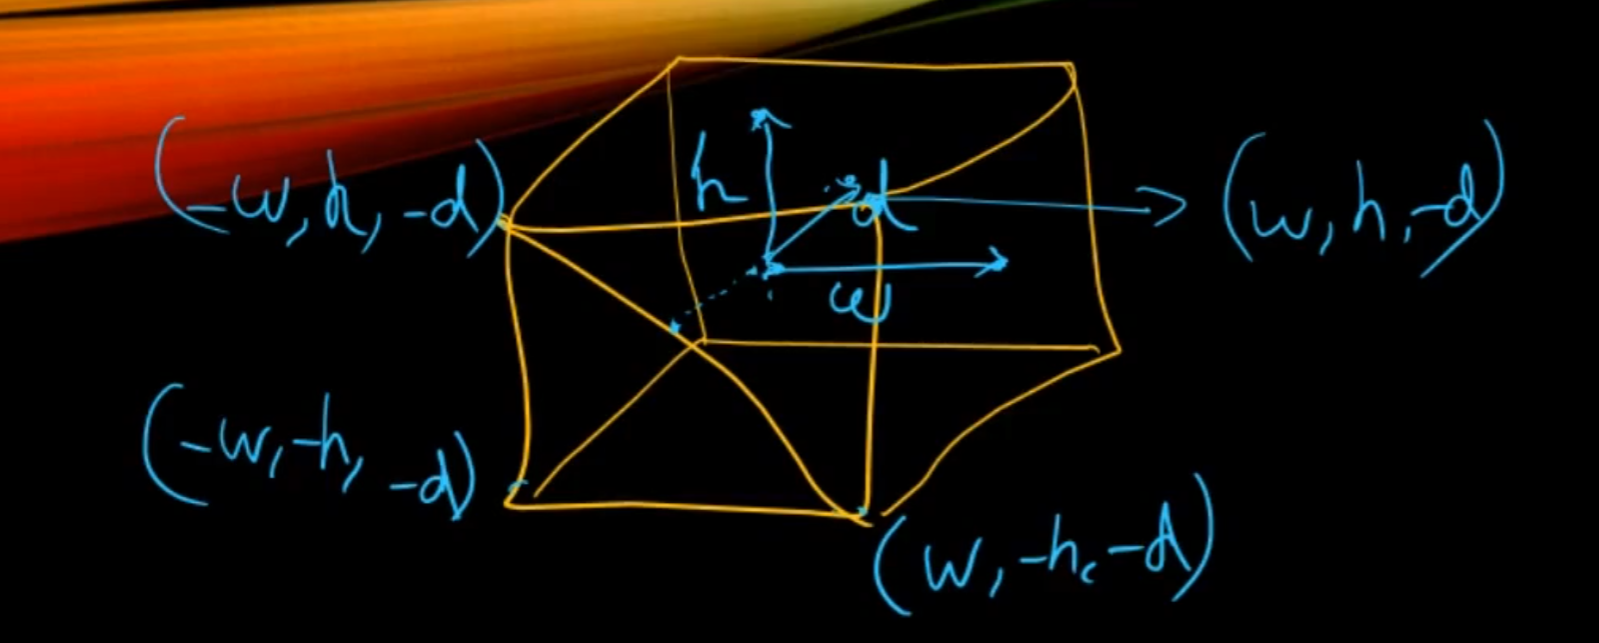 h
d
(-w, h, -d)
(w, h, -d)
w
(-w, -h, -d)
(w, -h, -d)